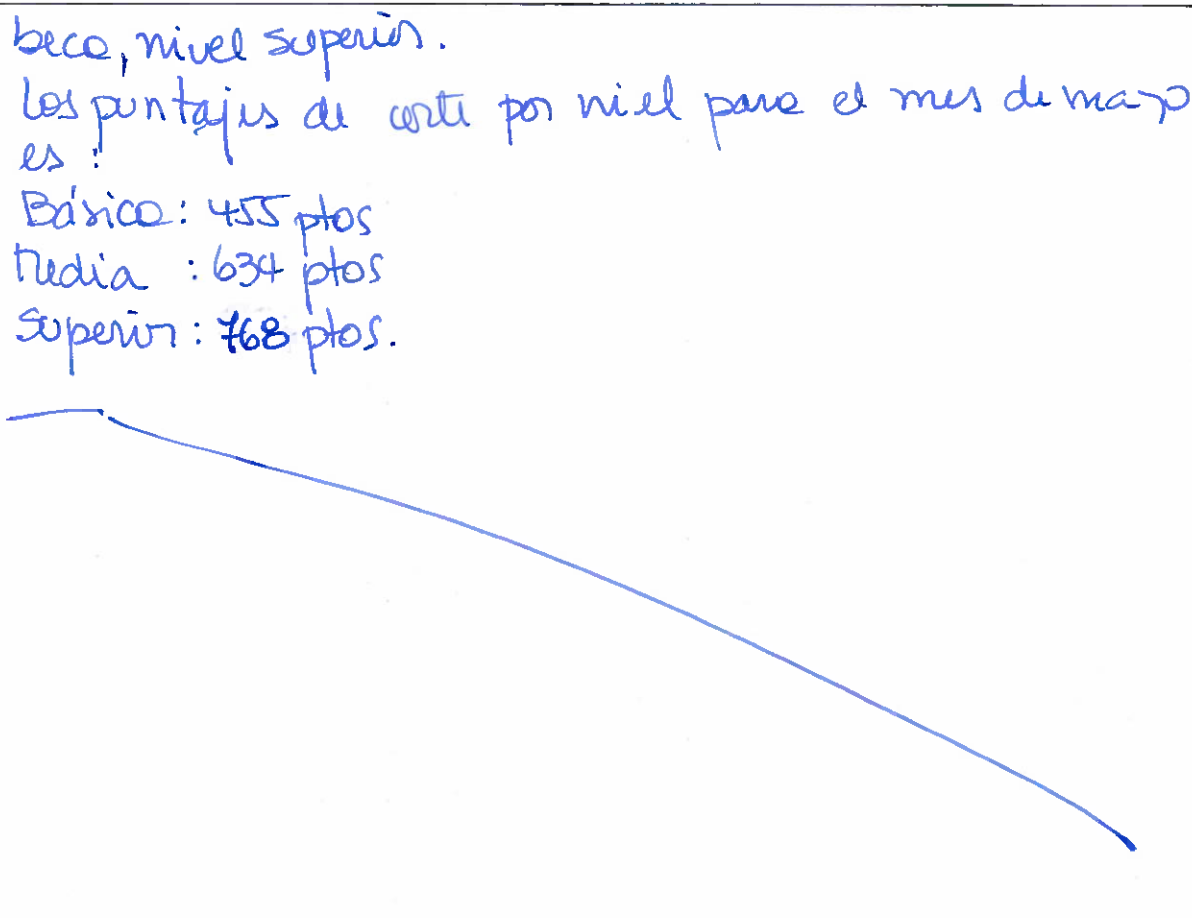 beca, nivel superior.
Los puntajes de corte por niel para el mes de mayo
es:
Básica: 455 ptos
Media : 634 ptos
Superior: 768 ptos.